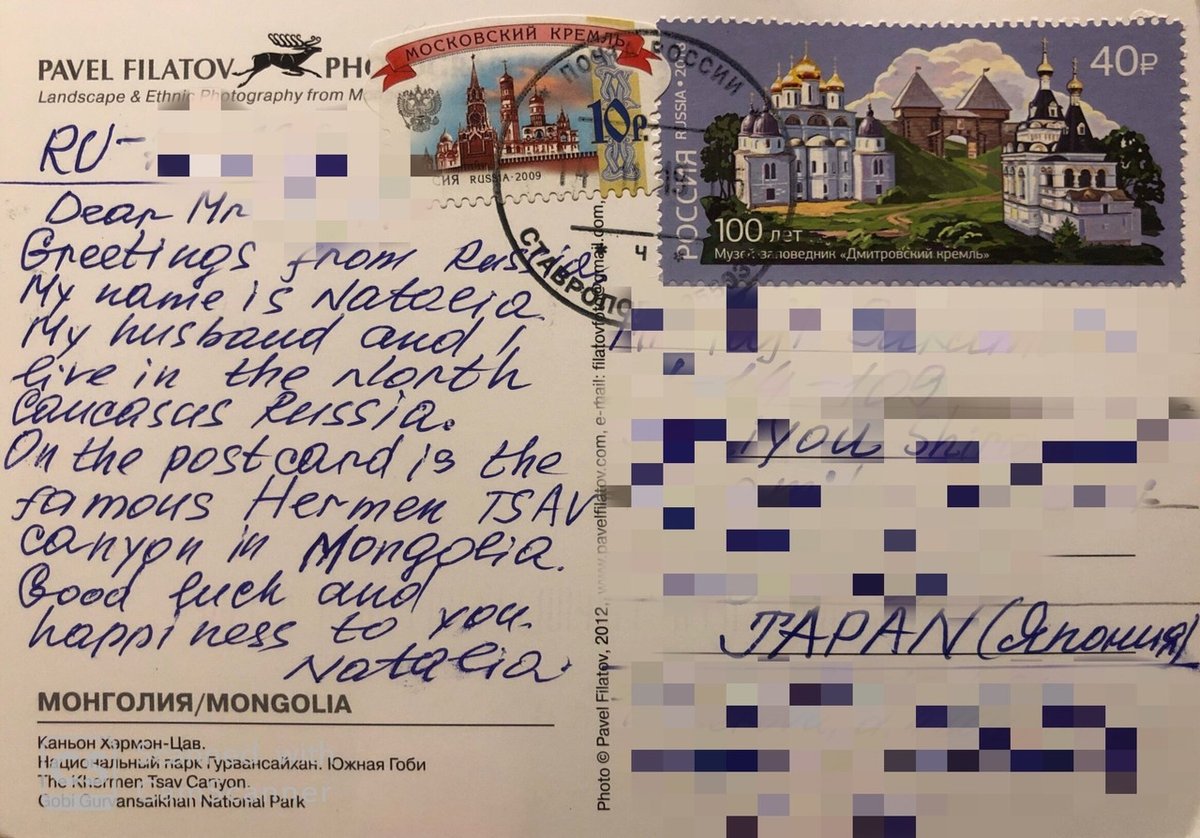 PAVEL FILATOV
Landscape & Ethnic Photography from
RU-
Dear Mr
Greetings from Russia
My name is Natalia
My husband and I
live in the North
Caucasus Russia.
On the postcard is the
famous Hermen TSAV
canyon in Mongolia.
Good luck and
happiness to you.
Natalia.
МОНГОЛИЯ/MONGOLIA
Каньон Хэрмэн-Цав.
Национальный парк Гурвансайхан. Южная Гоби
The Khermen Tsav Canyon.
Gobi Gurvansaikhan National Park
Photo © Pavel Filatov, 2012, www.pavelfilatov.com, e-mail: filatovfoto@gmail.com
МОСКОВСКИЙ КРЕМЛЬ
10р.
RUSSIA·2009
ПОЧТА РОССИИ
СТАВРОПО
40₽
РОССИЯ RUSSIA
100 лет
Музей-заповедник «Дмитровский кремль»
JAPAN (Япония)